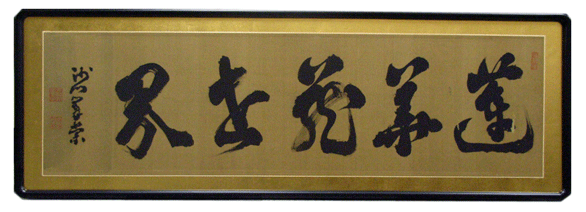 蓮華蔵世界